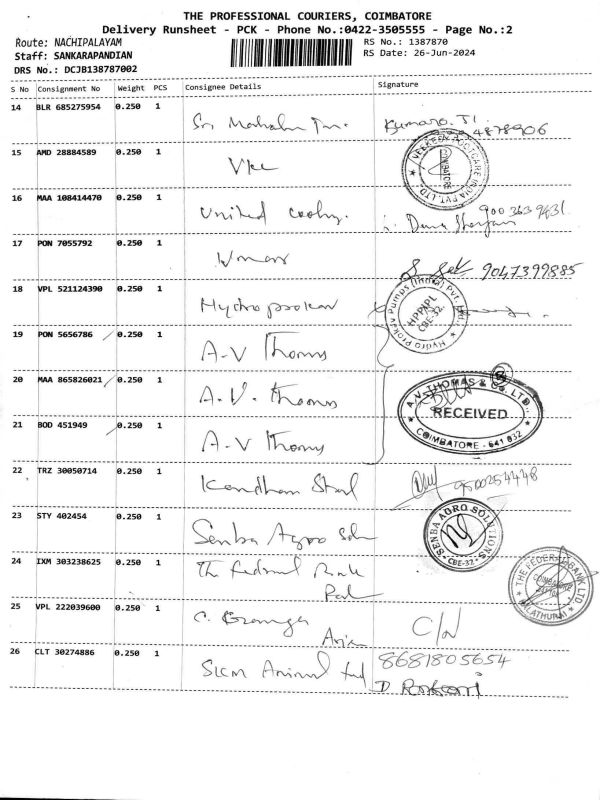 THE PROFESSIONAL COURIERS, COIMBATORE
Delivery Runsheet - PCK - Phone No.:0422-3505555 - Page No.:2
Route: NACHIPALAYAM
RS No.: 1387870
Staff: SANKARAPANDIAN
RS Date: 26-Jun-2024
DRS No.: DCJB138787002
S No Consignment No Weight PCS Consignee Details Signature
14 BLR 685275954 0.250 1
Sri
15 AMD 28884589 0.250 1
VKC
VEEKESY FOOTCARE INDIA PVT. LTD.
COIMBATORE
16 MAA 108414470 0.250 1
United 900 363 9431
17 PON 7055792 0.250 1
9047399885
18 VPL 521124390 0.250 1
Hydroprokav
Hydro Prokav Pumps (India) Pvt. Ltd.
HPPIPL
CBE-32.
19 PON 5656786 0.250 1
A.V Thomas
20 MAA 865826021 0.250 1
A.V. Thomas
A.V. THOMAS & CO. LTD.,
RECEIVED
COIMBATORE - 641 032
21 BOD 451949 0.250 1
A.V Thomas
22 TRZ 30050714 0.250 1
9500254448
23 STY 402454 0.250 1
Senba Agro Soln
SENBA AGRO SOLUTIONS
CBE-32.
24 IXM 303238625 0.250 1
The Federal Bank
THE FEDERAL BANK LTD
COIMBATORE
25 VPL 222039600 0.250 1
C/N
26 CLT 30274886 0.250 1
SKM Animal feed 8681805654